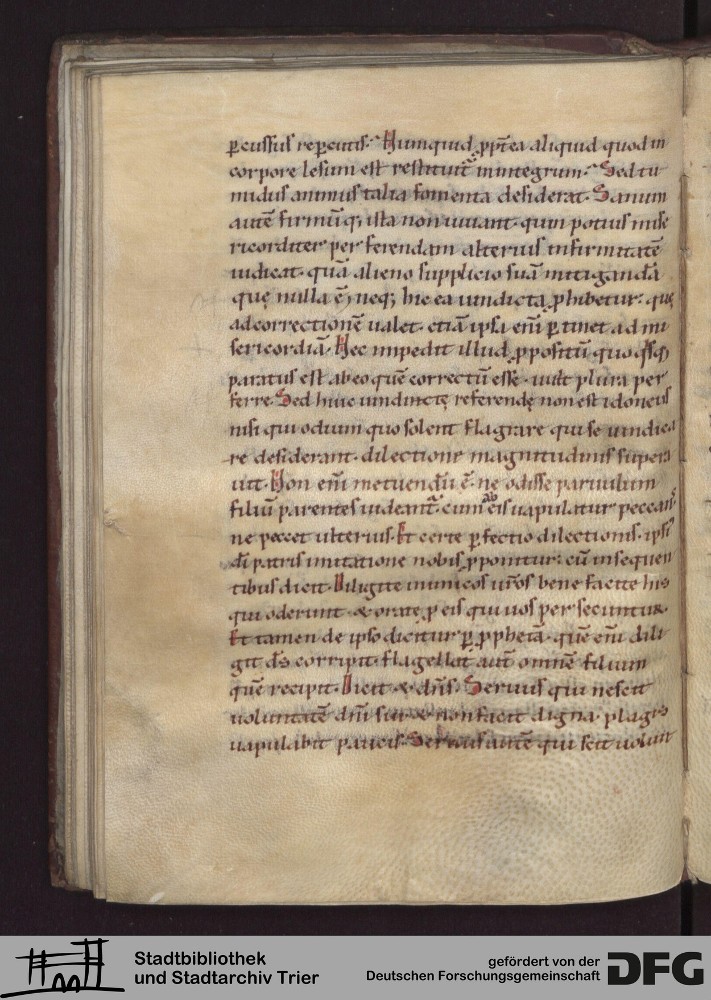 ꝑcussus reꝑcutis. Numquid ꝓpt̄ea aliquid quod in
corpore lesum est restituit᷑ in integrum. Sed tu
midus animus talia fomenta desiderat. Sanum
autē firmūq; ista non iuuant. quin potius mise
ricorditer per ferendam alterius infirmitatē
iudicat. quā alieno supplicio suā mitigandā
quę nulla ē; neq; hic ea uindicta ꝓhibetur. quę
ad correctionē ualet. etiā ipsa eni̅ ꝑtinet ad mi
sericordiā. Nec impedit illud ꝓpositū quo q̇sq;
paratus est ab eo quē correctū esse uult plura per
ferre. Sed huic uindictę referendę non est idoneus
nisi qui odium quo solent flagrare qui se uindica
re desiderant. dilectionis magnitudinis supera
uit. Non eni̅ metuendū ē. ne odisse paruulum
filiū parentes uideant᷑. cum ab eis uapulatur peccans.
ne peccet ulterius. Et certe ꝑfectio dilectionis. ipsi᷒
dī patris imitatione nobis ꝓponitur. cū in sequen
tibus dicit. Diligite inimicos ur̄os bene facite his
qui oderunt & orate ꝓ eis qui uos per secuntur.
Et tamen de ipso dicitur ꝑ ꝓphetā. quē eni̅ dili
git dn̄s corripit. flagellat aut̄ omnē filium
quē recipit. Dicit & dn̄s. Seruus qui nescit
uoluntatē dn̄i sui & non facit digna. plagis
uapulabit paucis. Seruus autē qui scit uolunt
Stadtbibliothek
und Stadtarchiv Trier
gefördert von der
Deutschen Forschungsgemeinschaft
DFG